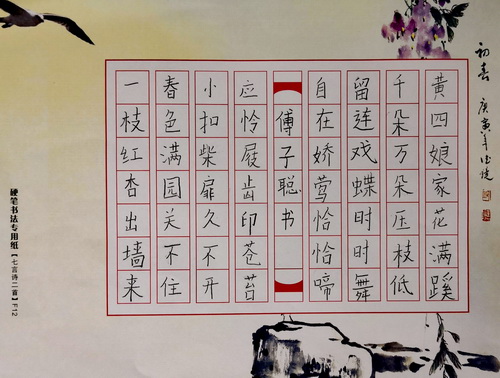 黄四娘家花满蹊
千朵万朵压枝低
留连戏蝶时时舞
自在娇莺恰恰啼
傅子聪书
应怜屐齿印苍苔
小扣柴扉久不开
春色满园关不住
一枝红杏出墙来
初春
庚寅年
硬笔书法专用纸【七言诗二首】F12